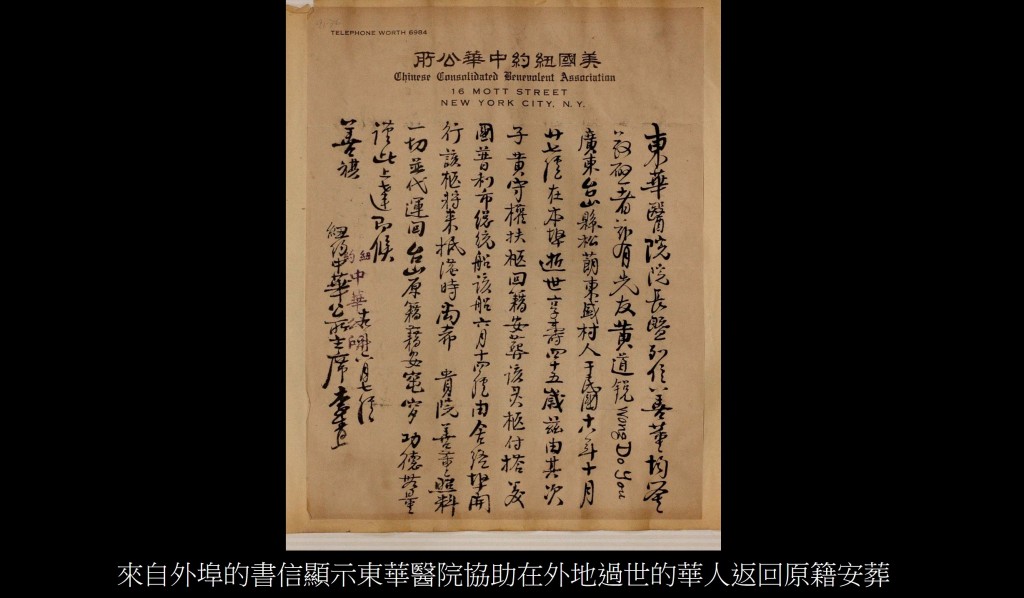 TELEPHONE WORTH 6984
美國紐約中華公所
Chinese Consolidated Benevolent Association
16 MOTT STREET
NEW YORK CITY, N.Y.
東華醫院院長暨列位善董均鑒
敬啟者玆有先友黃道銳 Wong Do You
廣東台山縣松蓢東盛村人于民國十六年十月
廿七號在本埠逝世享壽四十五歲茲由其次
子黃守權扶柩回籍安葬該灵柩付搭美
國普利布總統船該船六月十四號由舍經埠開
行該柩將来抵港時尚希 貴院善董照料
一切並代運回台山原籍藉安窀穸功德無量
謹此上達即候
善祺
紐約中華公所主席李
六月七號
來自外埠的書信顯示東華醫院協助在外地過世的華人返回原籍安葬